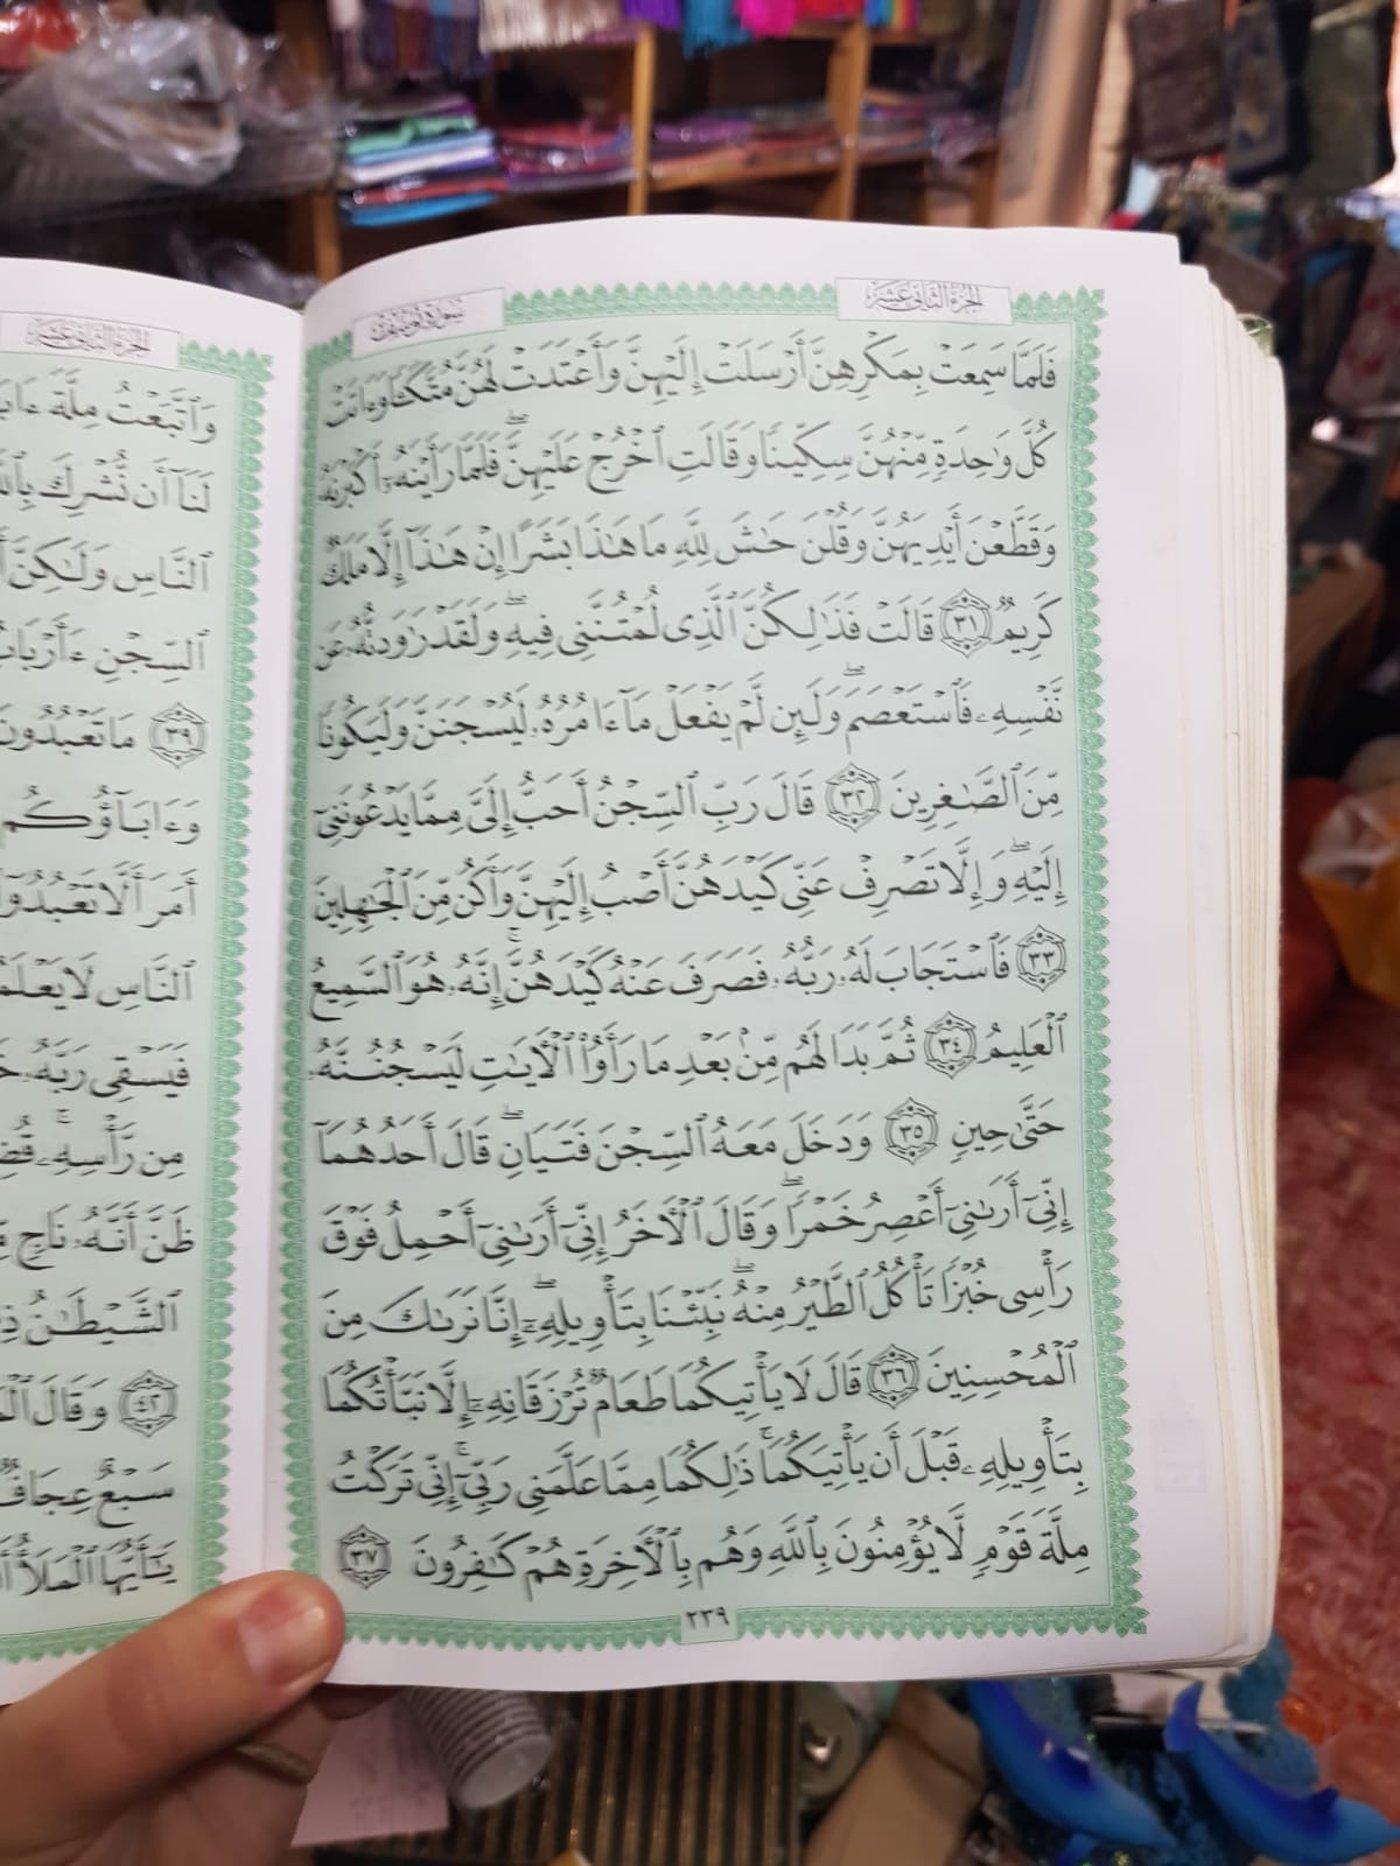 الجزء الثاني عشر
سورة يوسف
فَلَمَّا سَمِعَتْ بِمَكْرِهِنَّ أَرْسَلَتْ إِلَيْهِنَّ وَأَعْتَدَتْ لَهُنَّ مُتَّكَـًٔا وَءَاتَتْ
كُلَّ وَٰحِدَةٍ مِّنْهُنَّ سِكِّينًا وَقَالَتِ ٱخْرُجْ عَلَيْهِنَّ ۖ فَلَمَّا رَأَيْنَهُۥٓ أَكْبَرْنَهُۥ
وَقَطَّعْنَ أَيْدِيَهُنَّ وَقُلْنَ حَـٰشَ لِلَّهِ مَا هَـٰذَا بَشَرًا إِنْ هَـٰذَآ إِلَّا مَلَكٌ
كَرِيمٌ ٣١ قَالَتْ فَذَٰلِكُنَّ ٱلَّذِى لُمْتُنَّنِى فِيهِ ۖ وَلَقَدْ رَٰوَدتُّهُۥ عَن
نَّفْسِهِۦ فَٱسْتَعْصَمَ ۖ وَلَئِن لَّمْ يَفْعَلْ مَآ ءَامُرُهُۥ لَيُسْجَنَنَّ وَلَيَكُونًا
مِّنَ ٱلصَّـٰغِرِينَ ٣٢ قَالَ رَبِّ ٱلسِّجْنُ أَحَبُّ إِلَىَّ مِمَّا يَدْعُونَنِىٓ
إِلَيْهِ ۖ وَإِلَّا تَصْرِفْ عَنِّى كَيْدَهُنَّ أَصْبُ إِلَيْهِنَّ وَأَكُن مِّنَ ٱلْجَـٰهِلِينَ
٣٣ فَٱسْتَجَابَ لَهُۥ رَبُّهُۥ فَصَرَفَ عَنْهُ كَيْدَهُنَّ ۚ إِنَّهُۥ هُوَ ٱلسَّمِيعُ
ٱلْعَلِيمُ ٣٤ ثُمَّ بَدَا لَهُم مِّنۢ بَعْدِ مَا رَأَوُا۟ ٱلْـَٔايَـٰتِ لَيَسْجُنُنَّهُۥ
حَتَّىٰ حِينٍ ٣٥ وَدَخَلَ مَعَهُ ٱلسِّجْنَ فَتَيَانِ ۖ قَالَ أَحَدُهُمَآ
إِنِّىٓ أَرَىٰنِىٓ أَعْصِرُ خَمْرًا ۖ وَقَالَ ٱلْـَٔاخَرُ إِنِّىٓ أَرَىٰنِىٓ أَحْمِلُ فَوْقَ
رَأْسِى خُبْزًا تَأْكُلُ ٱلطَّيْرُ مِنْهُ ۖ نَبِّئْنَا بِتَأْوِيلِهِۦٓ ۖ إِنَّا نَرَىٰكَ مِنَ
ٱلْمُحْسِنِينَ ٣٦ قَالَ لَا يَأْتِيكُمَا طَعَامٌ تُرْزَقَانِهِۦٓ إِلَّا نَبَّأْتُكُمَا
بِتَأْوِيلِهِۦ قَبْلَ أَن يَأْتِيَكُمَا ۚ ذَٰلِكُمَا مِمَّا عَلَّمَنِى رَبِّىٓ ۚ إِنِّى تَرَكْتُ
مِلَّةَ قَوْمٍ لَّا يُؤْمِنُونَ بِٱللَّهِ وَهُم بِٱلْـَٔاخِرَةِ هُمْ كَـٰفِرُونَ ٣٧
٢٣٩
الجزء الثاني عشر
وَٱتَّبَعْتُ مِلَّةَ
لَنَآ أَن نُّشْرِكَ
ٱلنَّاسِ وَلَـٰكِنَّ
ٱلسِّجْنِ ءَأَرْبَابٌ
٣٩ مَا تَعْبُدُونَ
وَءَابَآؤُكُم
أَمَرَ أَلَّا تَعْبُدُوٓا۟
ٱلنَّاسِ لَا
فَيَسْقِى رَبَّهُۥ
مِن رَّأْسِهِۦ ۚ
ظَنَّ أَنَّهُۥ نَاجٍ
ٱلشَّيْطَـٰنُ
٤٢ وَقَالَ
سَبْعٌ عِجَافٌ
يَـٰٓأَيُّهَا ٱلْمَلَأُ